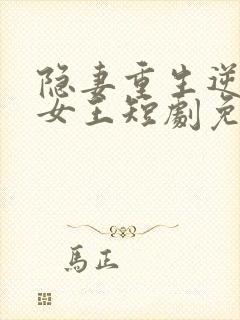 隐妻重生逆
女王短劇免
馬正